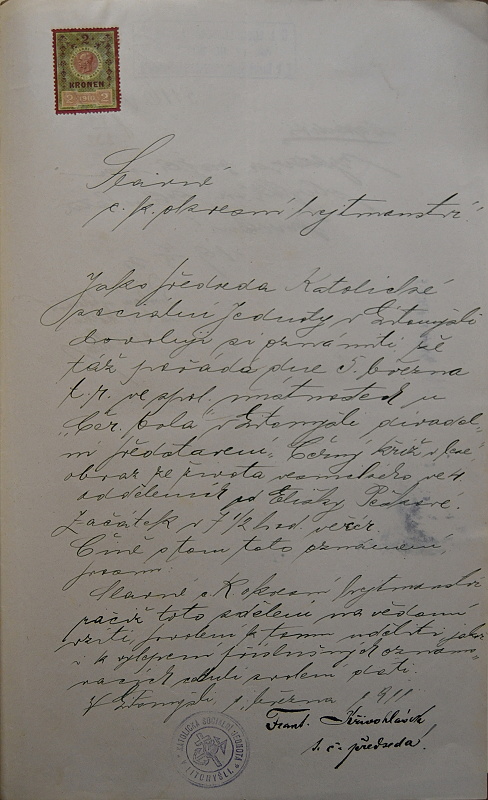 2
KRONEN
2 1910 2
Slavné
c. k. okresní hejtmanství!
Jako předseda Katolické
sociální Jednoty v Litomyšli
dovoluji si oznámiti že
táž pořádá dne 5. března
t. r. ve spol. místnostech u
„Čer. kola" v Litomyšli divadel-
ní představení „Černý kříž v lese"
obraz ze života vesnického ve 4
odděleních od Elišky Peškové.
Začátek v 7 1/2 hod. večer.
Čině o tom toto oznámení
prosím
Slavné c. k. okresní hejtmanství
račiž toto sdělení na vědomí
vzíti, povolení k tomu uděliti, jakož
i k vylepení příslušných oznamo-
vacích cedulí svolení dáti.
V Litomyšli, 1. března 1911.
Frant. Křivohlávek
t. č. předseda!
KATOLICKÁ SOCIÁLNÍ JEDNOTA
V LITOMYŠLI